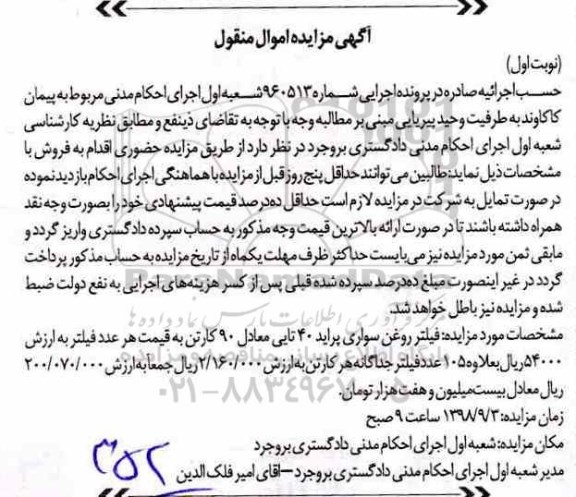 آگهی مزایده اموال منقول
(نوبت اول)
حسب اجرائیه صادره در پرونده اجرایی شماره ۹۶۰۵۱۳ شعبه اول اجرای احکام مدنی مربوط به پیمان
کاکاوند به طرفیت وحید بیریایی مبنی بر مطالبه وجه با توجه به تقاضای ذینفع و مطابق نظریه کارشناسی
شعبه اول اجرای احکام مدنی دادگستری بروجرد در نظر دارد از طریق مزایده حضوری اقدام به فروش با
مشخصات ذیل نماید: طالبین می توانند حداقل پنج روز قبل از مزایده با هماهنگی اجرای احکام بازدید نموده
در صورت تمایل به شرکت در مزایده لازم است حداقل ده درصد قیمت پیشنهادی خود را بصورت وجه نقد
همراه داشته باشند تا در صورت ارائه بالاترین قیمت وجه مذکور به حساب سپرده دادگستری واریز گردد و
مابقی ثمن مورد مزایده نیز می بایست حداکثر ظرف مهلت یکماه از تاریخ مزایده به حساب مذکور پرداخت
گردد در غیر اینصورت مبلغ ده درصد سپرده شده قبلی پس از کسر هزینه های اجرایی به نفع دولت ضبط
شده و مزایده نیز باطل خواهد شد.
مشخصات مورد مزایده: فیلتر روغن سواری پراید ۴۰ تایی معادل ۹۰ کارتن به قیمت هر عدد فیلتر به ارزش
۵۴۰۰۰ ریال بعلاوه ۱۰۵ عدد فیلتر جداگانه هر کارتن به ارزش ۲/۱۶۰/۰۰۰ ریال جمعا به ارزش ۲۰۰/۰۷۰/۰۰۰
ریال معادل بیست میلیون و هفت هزار تومان.
زمان مزایده: ۱۳۹۸/۹/۳ ساعت ۹ صبح
مکان مزایده: شعبه اول اجرای احکام مدنی دادگستری بروجرد
مدیر شعبه اول اجرای احکام مدنی دادگستری بروجرد – اقای امیر فلک الدین
ParsNamadData
۰۲۱-۸۸۳۴۹۶۷۰